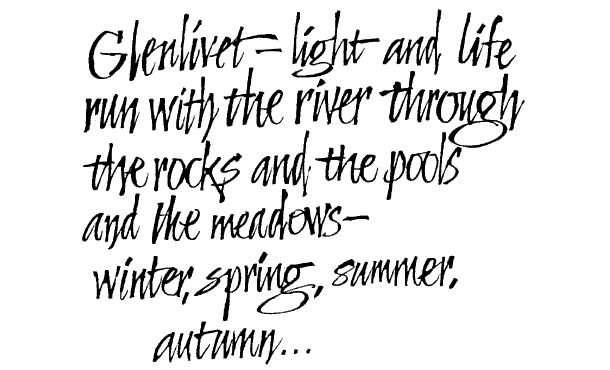 Glenlivet – light and life
run with the river through
the rocks and the pools
and the meadows–
winter, spring, summer,
autumn...